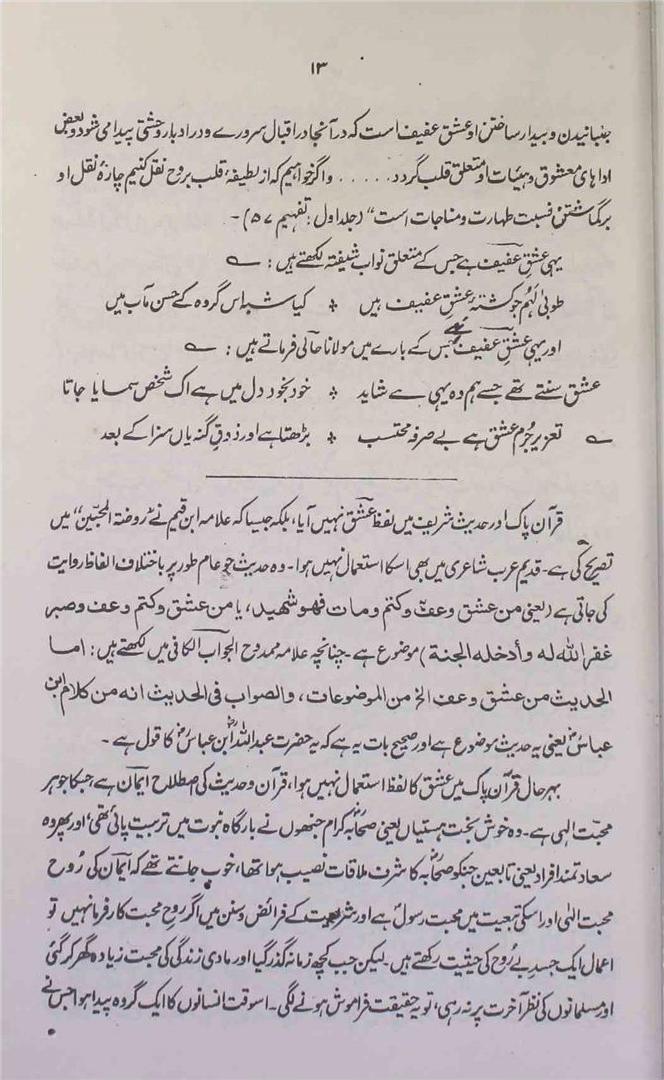 ۱۳
جنبانیدن و بیدار ساختن او عشق عفیف است کہ در آنجا در اقبال سرورے و در ادبار وحشتی پیدا می شود و بعض
اداہای معشوق و ہیئات او متعلق قلب گردد ..... واگر خواہیم کہ از لطیفۂ قلب بروح نقل کنیم چارۂ نقل او
برگماشتن نسبت طہارت و مناجات است“ (جلد اول: تفہیم ۵۷)۔
یہی عشقِ عفیف ہے جس کے متعلق نواب شیفتہ لکھتے ہیں: ؎
طوبیٰ لَہُم جو کشتۂ عشقِ عفیف ہیں ؞ کیا شبہ اس گروہ کے حسن مآب میں
اور یہی عشقِ عفیف ہے جس کے بارے میں مولانا حالی فرماتے ہیں: ؎
عشق سنتے تھے جسے ہم وہ یہی ہے شاید ؞ خود بخود دل میں ہے اک شخص سمایا جاتا
؎ تعزیر جُرم عشق ہے بے صرفہ محتسب ؞ بڑھتا ہے اور ذوقِ گنہ یاں سزا کے بعد
قرآن پاک اور حدیث شریف میں لفظ عشق نہیں آیا، بلکہ جیسا کہ علامہ ابن قیم نے ”روضۃ المحبین“ میں
تصریح کی ہے۔ قدیم عرب شاعری میں بھی اسکا استعمال نہیں ہوا۔ وہ حدیث جو عام طور پر باختلاف الفاظ روایت
کی جاتی ہے (یعنی من عشق وعفّ وکتم ومات فهو شهيد، یا من عشق وکتم وعف وصبر
غفر الله له وأدخله الجنة) موضوع ہے۔ چنانچہ علامہ ممدوح الجواب الکافی میں لکھتے ہیں: اما
الحديث من عشق وعف الخ من الموضوعات، والصواب فی الحديث انه من كلام ابن
عباسؓ یعنی یہ حدیث موضوع ہے اور صحیح بات یہ ہے کہ یہ حضرت عبداللہؓ ابن عباسؓ کا قول ہے۔
بہرحال قرآن پاک میں عشق کا لفظ استعمال نہیں ہوا، قرآن و حدیث کی اصطلاح ایمان ہے جسکا جوہر
محبّت الٰہی ہے۔ وہ خوش بخت ہستیاں یعنی صحابۂ کرام جنھوں نے بارگاہ نبوت میں تربیت پائی تھی، اور پھر وہ
سعادتمند افراد یعنی تابعین جنکو صحابہؓ کا شرف ملاقات نصیب ہوا تھا، خوب جانتے تھے کہ ایمان کی رُوح
محبت الٰہی اور اسکی تبعیت میں محبت رسولؐ ہے اور شریعت کے فرائض و سنن میں اگر روحِ محبت کارفرما نہیں تو
اعمال ایک جسدِ بے رُوح کی حیثیت رکھتے ہیں۔ لیکن جب کچھ زمانہ گذر گیا اور مادی زندگی کی محبت زیادہ گھر کر گئی
اور مسلمانوں کی نظر آخرت پر نہ رہی، تو یہ حقیقت فراموش ہونے لگی۔ اسوقت انسانوں کا ایک گروہ پیدا ہوا جس نے